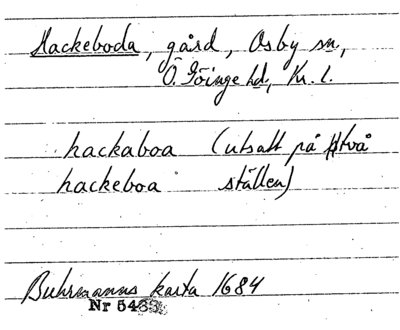 Hackeboda, gård, Osby sn,
Ö. Göinge hd, Kr. l.
hackaboa (utsatt på två
hackeboa ställen)
Buhrmanns karta 1684
Nr 54